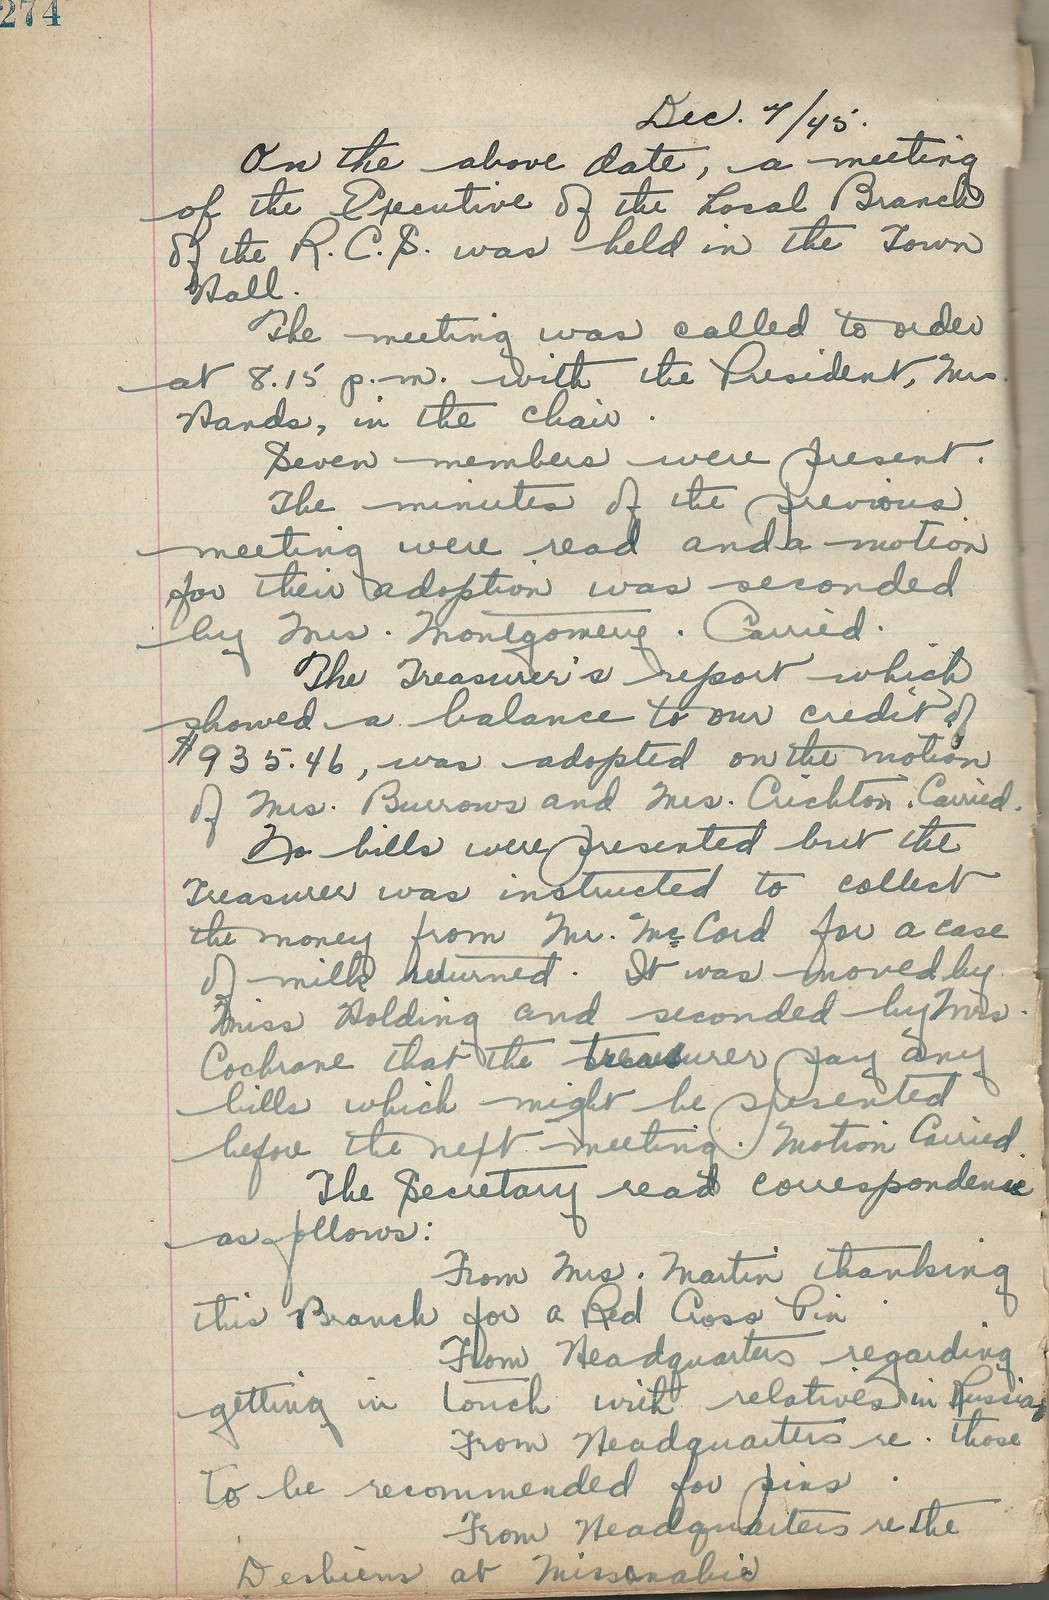 274
Dec. 7/45.
On the above date, a meeting
of the Executive of the Local Branch
of the R.C.S. was held in the Town
Hall.
The meeting was called to order
at 8.15 p.m. with the President, Mrs.
Hands, in the chair.
Seven members were present.
The minutes of the previous
meeting were read and a motion
for their adoption was seconded
by Mrs. Montgomery. Carried.
The Treasurer's report which
showed a balance to our credit of
$935.46, was adopted on the motion
of Mrs. Burrows and Mrs. Crichton. Carried.
No bills were presented but the
Treasurer was instructed to collect
the money from Mr. McCord for a case
of milk returned. It was moved by
Miss Holding and seconded by Mrs.
Cochrane that the treasurer pay any
bills which might be presented
before the next meeting. Motion Carried.
The Secretary read correspondence
as follows:
From Mrs. Martin thanking
this Branch for a Red Cross Pin.
From Headquarters regarding
getting in touch with relatives in Russia,
From Headquarters re. those
to be recommended for pins.
From Headquarters re the
Desbiens at Missanabie